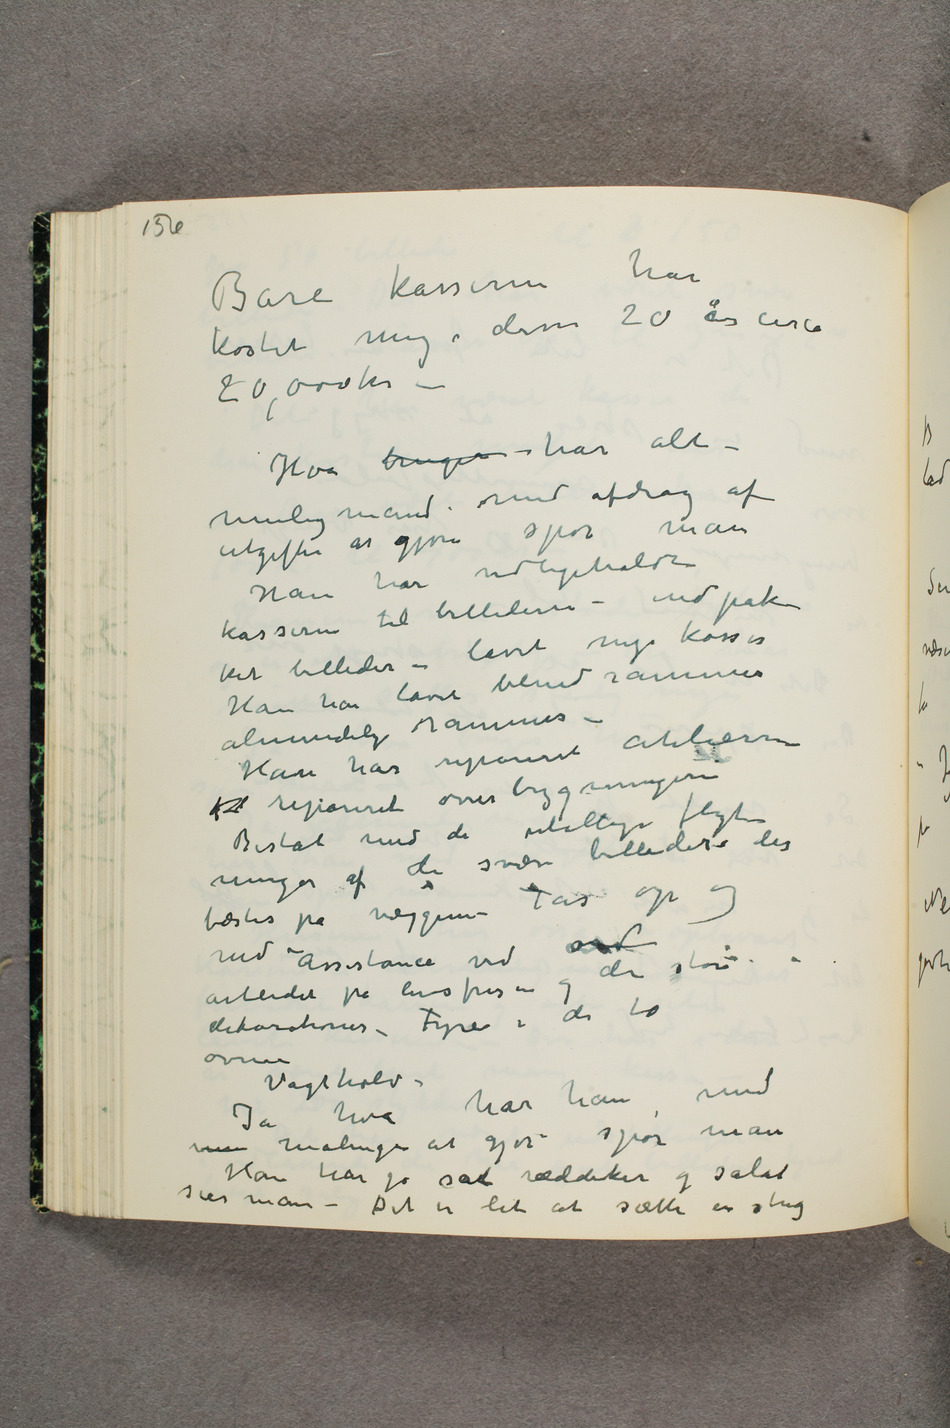 156
Bare kasserne har
kostet mig i disse 20 år circa
20,000 kr –
Hva har alt –
muligmand. med afdrag af
utgifter at gjøre spør man
Han har vedligeholdt
kasserne til billederne – indpak
ket billeder – lavet nye kasser
Han har lavet blindrammer
almindelige rammer –
Han har reparert atelierene
repareret overbygningerne
Biståt med de utallige flyt
ninger af de svære billeder der
bæstes på væggene – Tas op og
ned – Assistance ved
arbeidet på livsfrisen og de store
dekorationer – Fyre i de to
ovne
Vagthold –
Ja hva har han med
malingen at gjør spør man
Han har jo sat ræddiker og salat
sier man – Det er let at sætte en slig